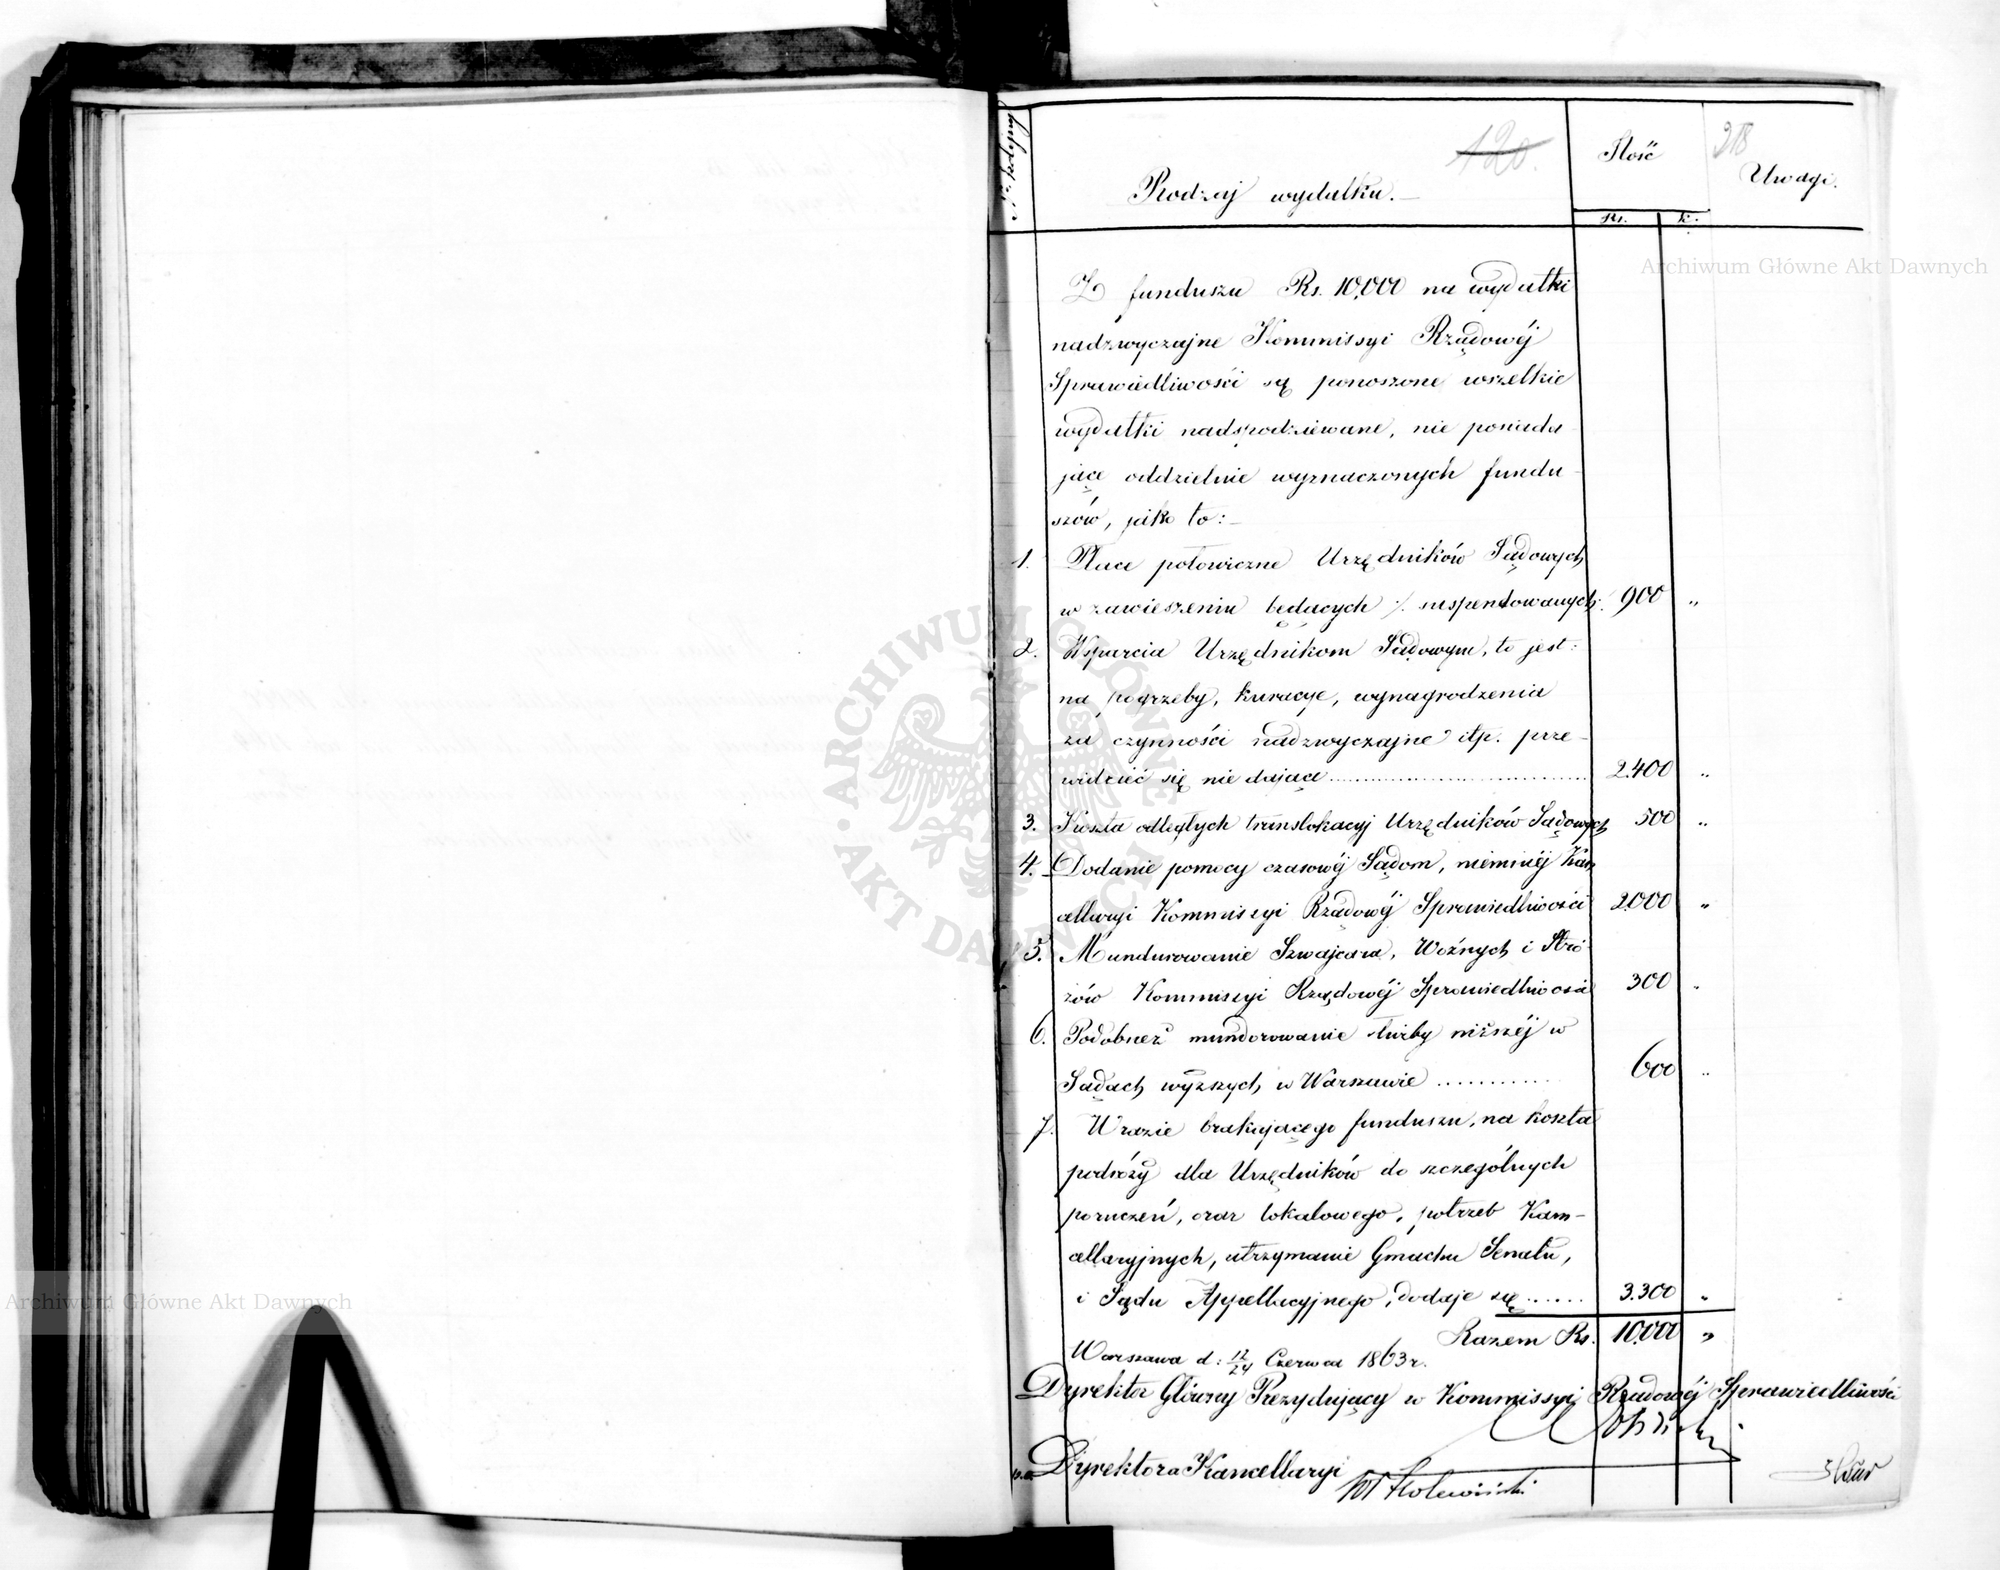 120.
Ilość
218
Uwagi.
Rodzaj wydatku.
Rs. k.
Z funduszu Rs. 10,000 na wydatki
nadzwyczajne Kommissyi Rządowéj
Sprawiedliwości są ponoszone wszelkie
wydatki nadspodziewane, nie posiada-
jące oddzielnie wyznaczonych fundu-
szów, jako to:
1. Płace połowiczne Urzędników Sądowych
w zawieszeniu będących /. suspendowanych: 900 "
2. Wsparcia Urzędnikom Sądowym, to jest:
na pogrzeby, kuracye, wynagrodzenia
za czynności nadzwyczajne itp. prze-
widzieć się nie dające .............. 2.400 "
3. Koszta odległych translokacyj Urzędników Sądowych 500 "
4. Dodanie pomocy czasowéj Sądom, niemniéj Kan
cellaryi Kommissyi Rządowéj Sprawiedliwości 2000 "
5. Mundurowanie Szwajcara, Woźnych i Stró-
żów Kommissyi Rządowéj Sprawiedliwości 300 "
6. Podobneż mundorowanie służby niższéj w
Sądach wyższych w Warszawie ............ 600 "
7. W razie brakującego funduszu, na koszta
podróży dla Urzędników do szczególnych
poruczeń, oraz lokalowego, potrzeb Kan-
cellaryjnych, utrzymanie Gmachu Senatu,
i Sądu Appellacyjnego, dodaje się ...... 3.300 "
Razem Rs. 10,000 "
Warszawa d: 12/24 Czerwca 1863 r.
Dyrektor Główny Prezydujący w Kommissyi Rządowéj Sprawiedliwości
Dyrektora Kancellaryi
Archiwum Główne Akt Dawnych
Archiwum Główne Akt Dawnych
ARCHIWUM GŁÓWNE AKT DAWNYCH